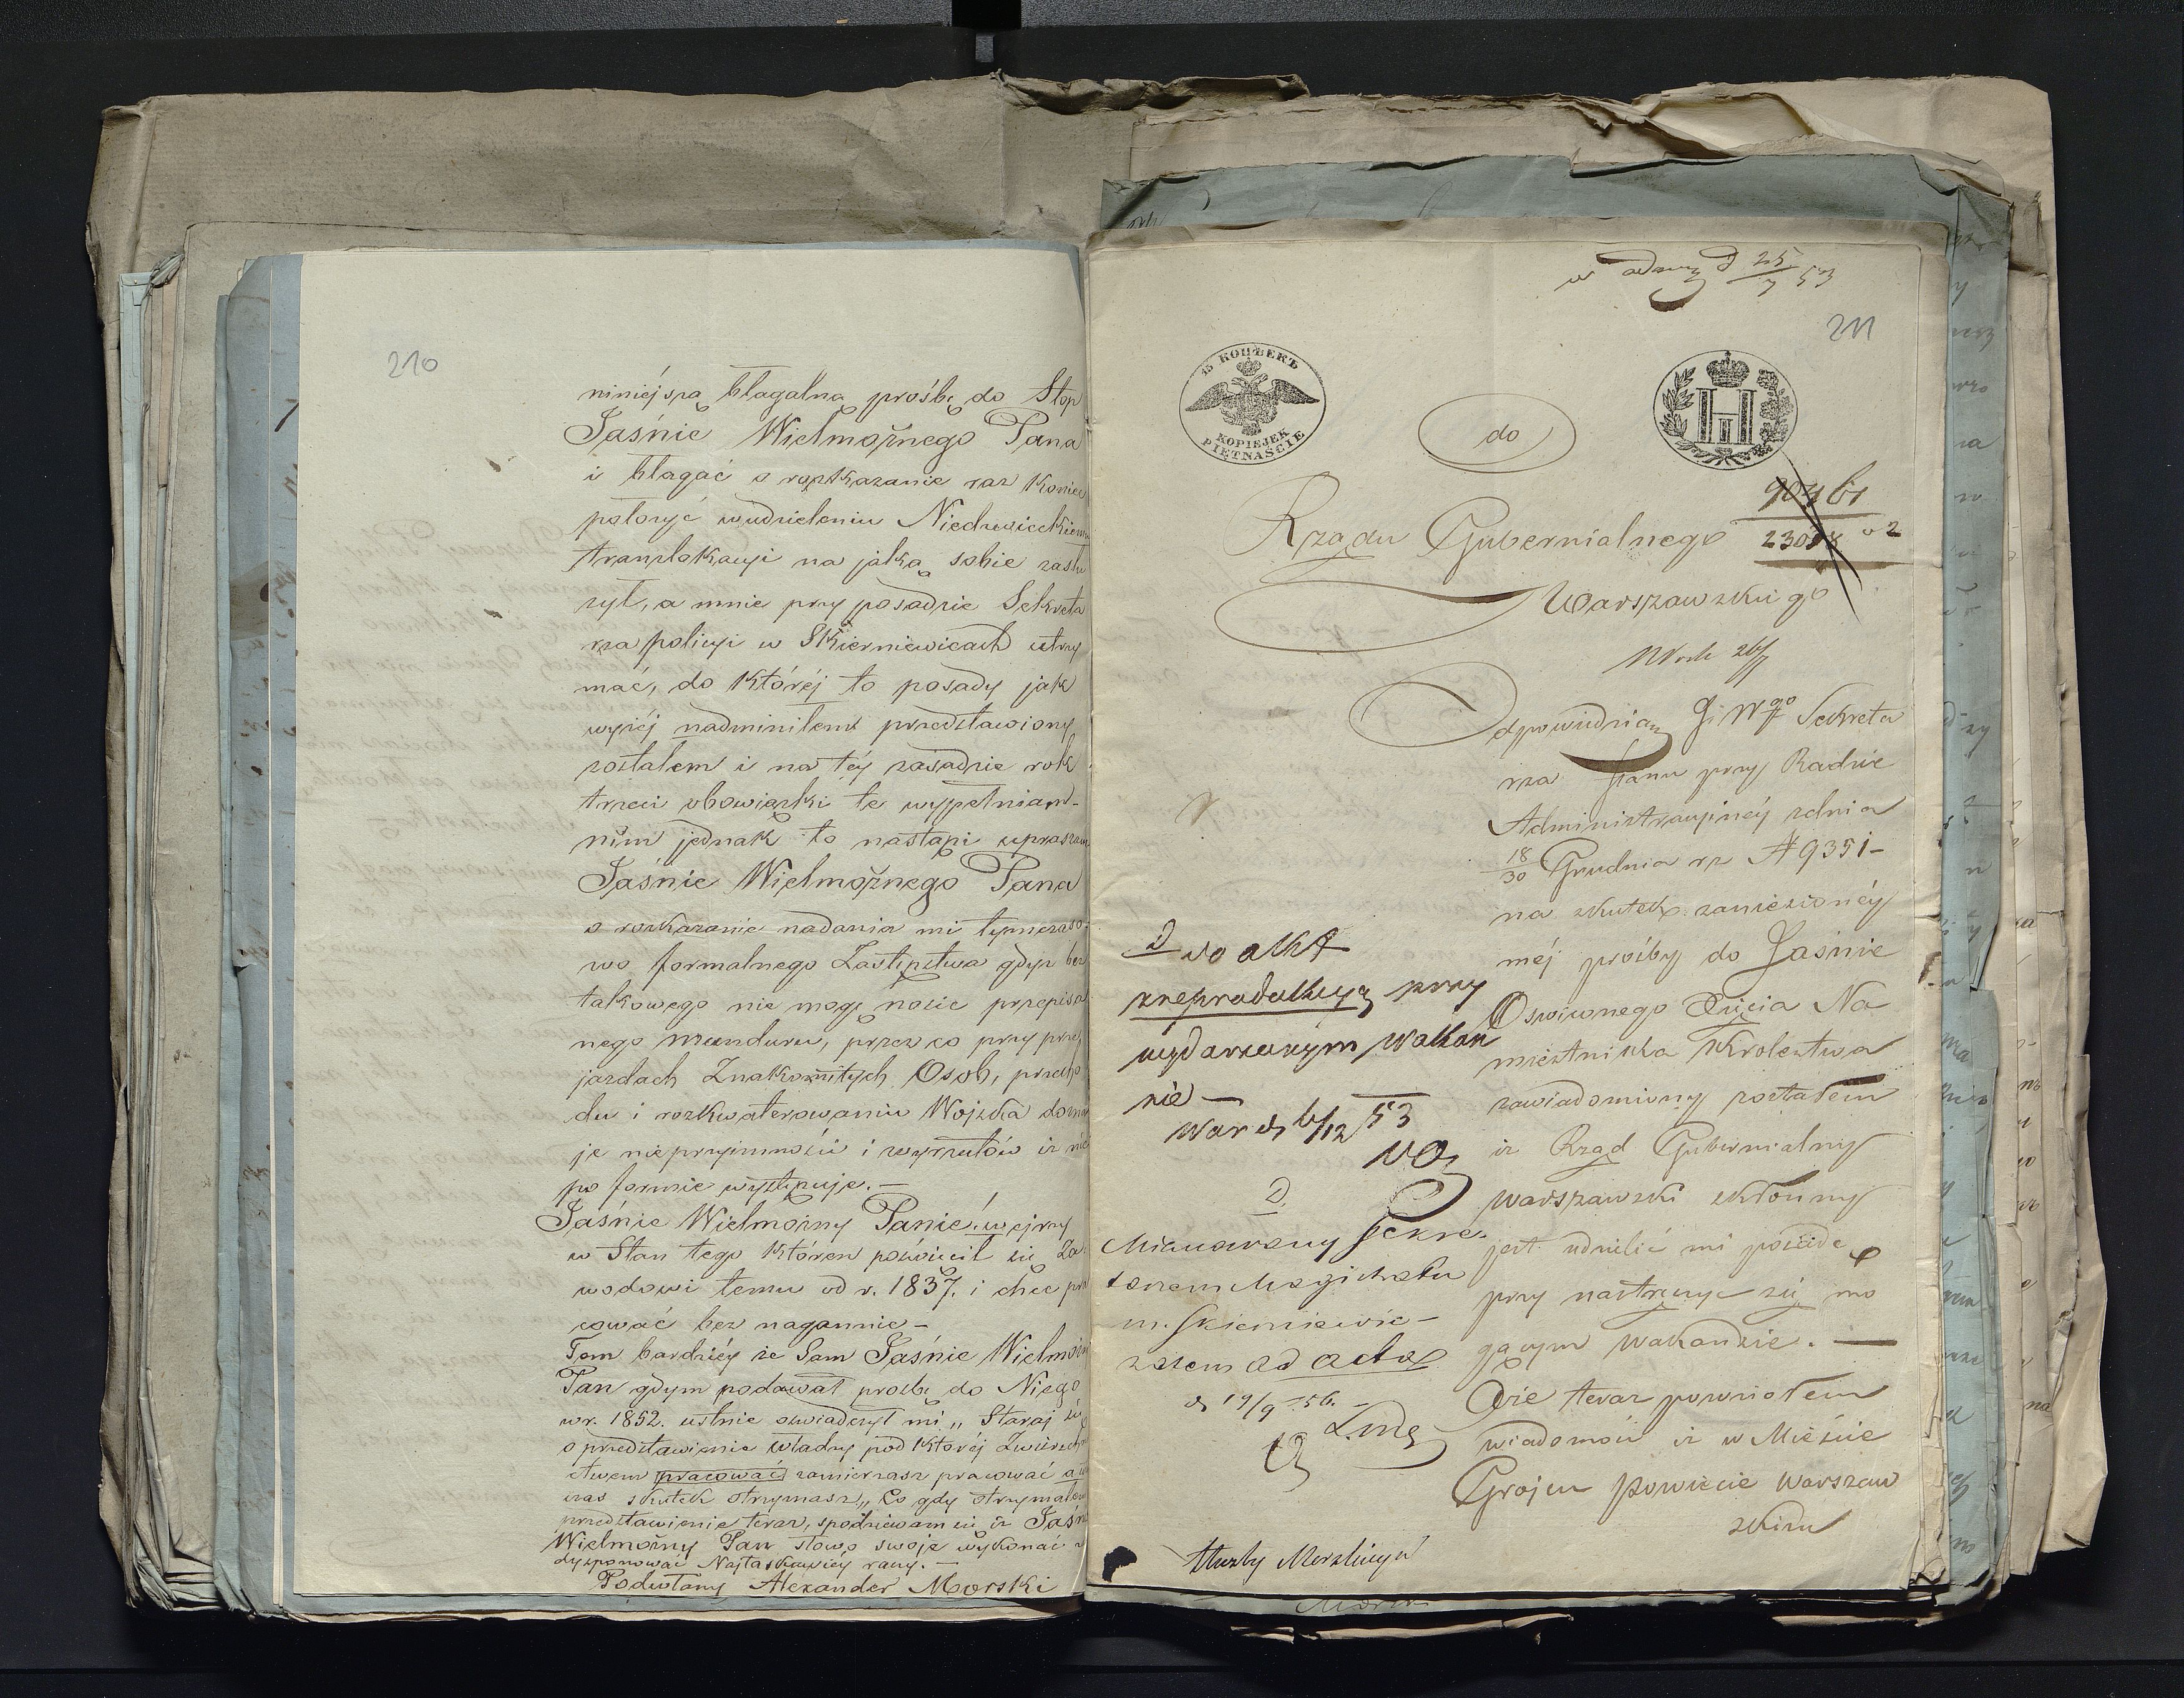 210
niniéjszą błagalną prośbę do Stop
Jaśnie Wielmożnego Pana
i błagać o rozkazanie raz koniec
położyć w udzieleniu Niedzwieckiemu
translokacyi na jaką sobie zasłu
żył, a mnie przy posadzie Sekreta
rza policyi w Skierniewicach utrzy
mać, do któréj to posady jak
wyżéj nadminiłem przedstawiony
zostałem i na téj zasadzie rok
trzeci obowiązki te wypełniam –
nim jednak to nastąpi upraszam
Jaśnie Wielmożnego Pana
o rozkazanie nadania mi tymczaso
wo formalnego Zastępstwa gdyż bez
takowego nie mogę nosić przepisa
nego munduru, przez co przy prze
jazdach Znakomitych Osob, przecho
du i rozkwaterowaniu Wojska dozna
ję nieprzyjmności i wyrzutów iż nie
po formie występuje. —
Jaśnie Wielmożny Panie! wejrzy
w Stan tego któren poświęcił się Za
wodowi temu od r. 1837. i chce pra
cować bez nagannie –
Tem bardziéj że Sam Jaśnie Wielmożn
Pan gdym podawał prozbę do Niego
w r. 1852. ustnie oświadczył mi „ Staraj się
o przedstawienie władzy pod któréj Zwierzch
ctwem pracować zamierzasz pracować a w
czas skutek otrzymasz „ Co gdy otrzymałem
przedstawienie teraz, spodziewam się iż Jaśn
Wielmożny Pan słowo swoje wykonać i
dysponować Najłaskawiéj raczy. —
Podwładny Alexander Morski
d 25/7 53
211
15 КОПѢЕКЪ
KOPIEJEK
PIĘTNAŚCIE
do
Rządu Gubernialnego
Warszawskiego
26/7
Odpowiednią JWgo Sekreta
rza Stanu przy Radzie
Administracyinéj z dnia
18/30 Grudnia rz N 9351 –
na skutek zaniesionéj
méj prośby do Jaśnie
Oswiconego Xięcia Na
miestnika Krolestwa
zawiadomiony zostałem
iż Rząd Gubernialny
Warszawski skłonny
jest udzielić mi posadę
przy nastręczyć się mo
gącym wakansie. —
Oże teraz powziołem
wiadomość iż w Mieście
Grojcu Powiecie Warszaw
skim
do akt
przy
wydarzonym wakan
sie —
War d 6/12 53
Mianowany Sekre
tarzem Magistratu
m. Skierniewic –
zatem ad acta
d 19/9 56.